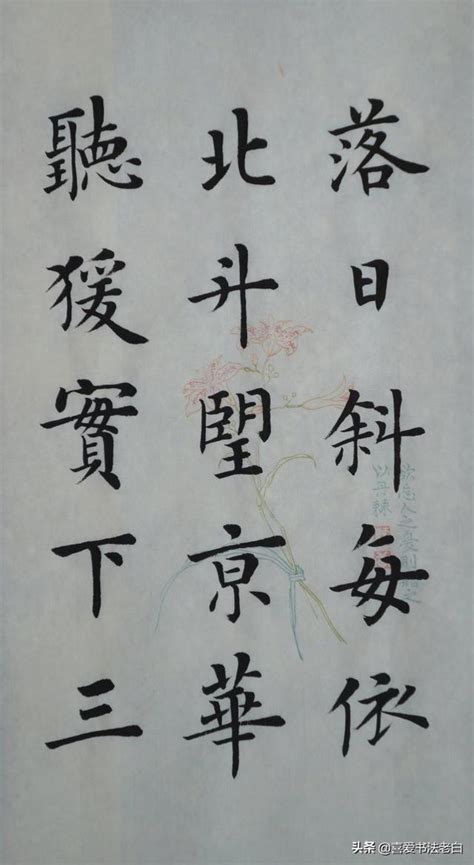 落日斜每依
北斗望京華
聽猨實下三
以丹棘
头条@喜爱书法老白